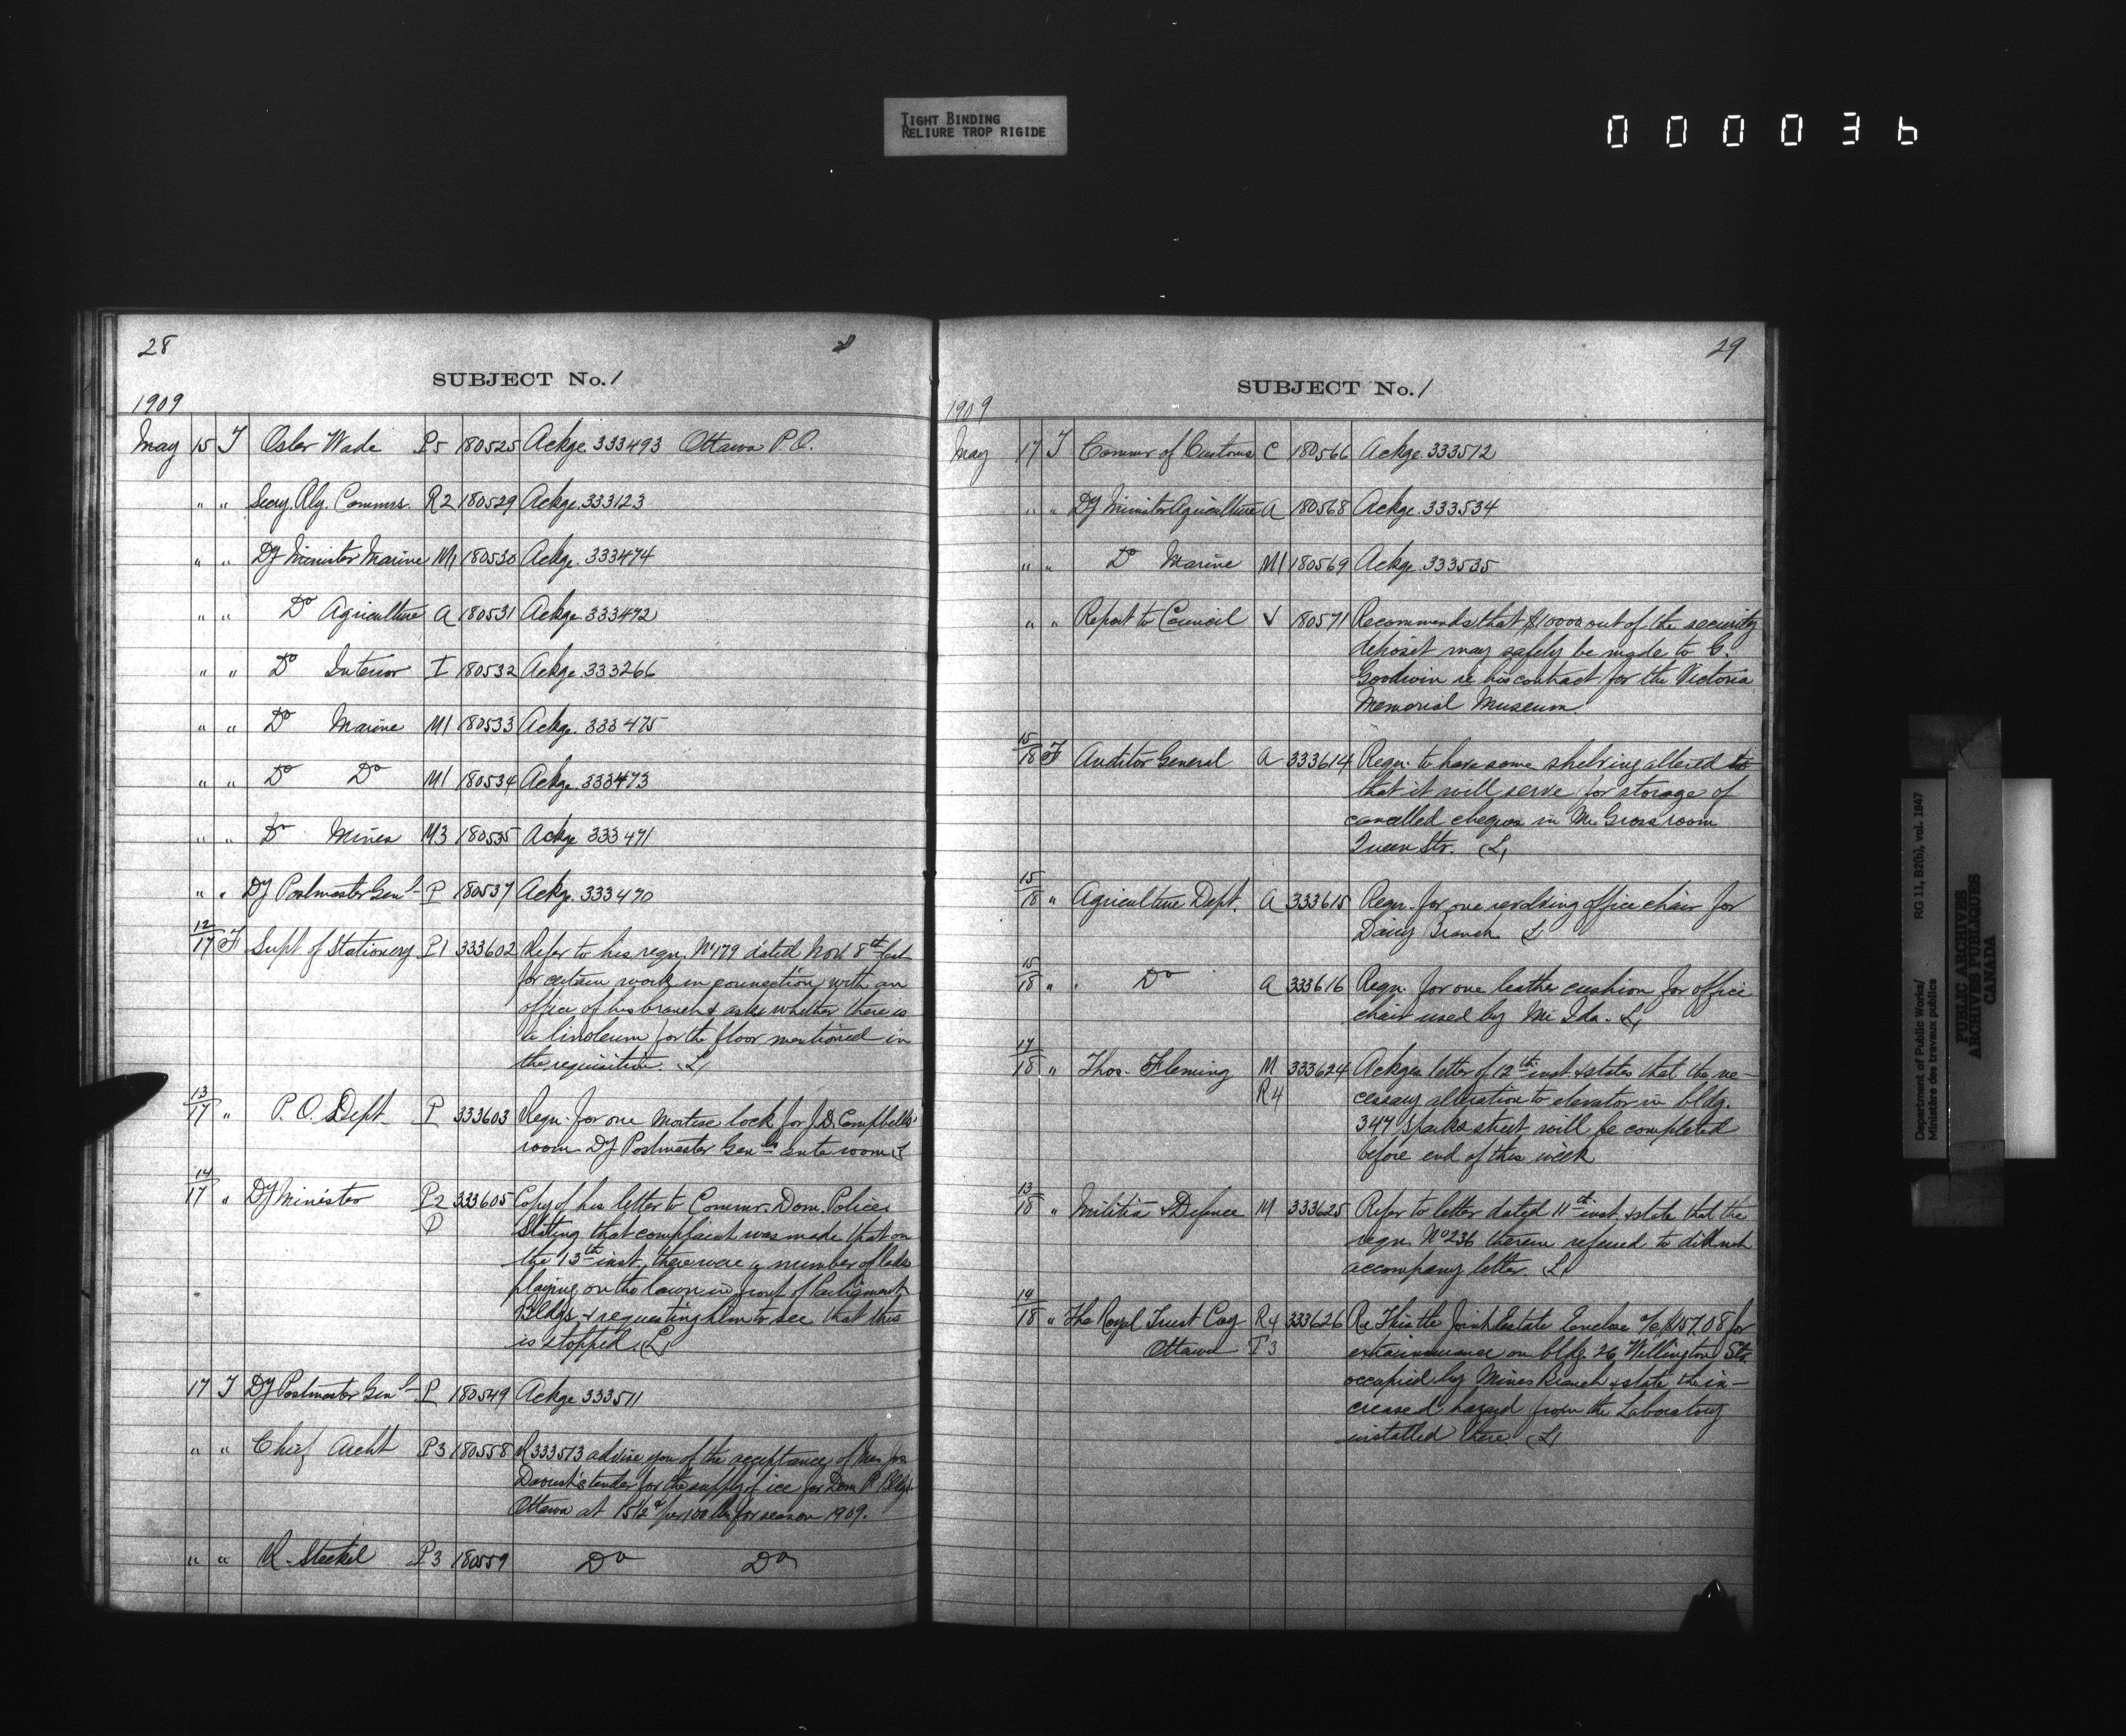 TIGHT BINDING
RELIURE TROP RIGIDE
000036
28
SUBJECT No. 1
1909
May 15 T Osler Wade P5 180525 Ackge. 333493 Ottawa P.O.
" " Secy. Rly. Commrs. R2 180529 Ackge. 333123
" " Dy Minister Marine M1 180530 Ackge. 333474
" " Do Agriculture A 180531 Ackge. 333472
" " Do Interior I 180532 Ackge. 333266
" " Do Marine M1 180533 Ackge. 333475
" " Do Do M1 180534 Ackge. 333473
" " Do Mines M3 180535 Ackge 333471
" " Dy Postmaster Genl P 180537 Ackge. 333470
12/17 F Supt. of Stationery P1 333602 Refer to his reqn. No 179 dated Nov. 8th last
for certain work in connection with an
office of his branch & asks whether there is
a linoleum for the floor mentioned in
the requisition. L
13/17 " P.O. Dept. P 333603 Reqn. for one mortise lock for J.D. Campbell's
room Dy Postmaster Genls ante room L
14/17 " Dy Minister P2 333605 Copy of his letter to Commr. Dom. Police
P stating that complaint was made that on
the 13th inst. there were a number of lads
playing on the lawn in front of Parliament
Bldgs. & requesting him to see that this
is stopped. L
17 T Dy Postmaster Genl P 180549 Ackge 333511
" " Chief Archt P3 180558 R 333513 advise you of the acceptance of
tender for the supply of ice for Dom. P. Bldgs.
Ottawa at 15½ ¢ per 100 lbs for season 1909.
" " R. Steckel P3 180559 Do Do
29
SUBJECT No. 1
1909
May 17 T Commr of Customs C 180566 Ackge. 333512
" " Dy Minister Agriculture A 180568 Ackge. 333534
" " Do Marine M1 180569 Ackge. 333535
" " Report to Council V 180571 Recommends that $10000 out of the security
deposit may safely be made to G.
Goodwin re his contract for the Victoria
Memorial Museum.
15/18 F Auditor General A 333614 Reqn. to have some shelving altered so
that it will serve for storage of
cancelled cheques in Mr Gross room
Queen Str. L
15/18 " Agriculture Dept. A 333615 Reqn. for one revolving office chair for
Dairy Branch L
15/18 " Do A 333616 Reqn. for one leather cushion for office
chair used by Mr Ida. L
17/18 " Thos. Fleming M 333624 Ackges letter of 12th inst. & states that the ne-
R4 cessary alteration to elevator in bldg.
347 Sparks street will be completed
before end of this week
13/18 " Militia & Defence M 333625 Refer to letter dated 11th inst. & state that the
reqn. No 236 therein referred to did not
accompany letter. L
14/18 " The Royal Trust Coy R4 333626 Re Thistle Joint Estate Enclose a/c $157.08 for
Ottawa T3 extra insurance on bldg. 26 Wellington Str.
occupied by Mines Branch & state the in-
creased hazard from the Laboratory
installed there. L
Department of Public Works/
Ministère des travaux publics
RG 11, B2(b), vol. 1847
PUBLIC ARCHIVES
ARCHIVES PUBLIQUES
CANADA